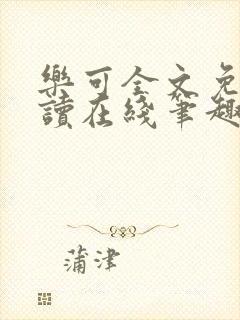 樂可全文免
讀在綫筆趣
蒲津